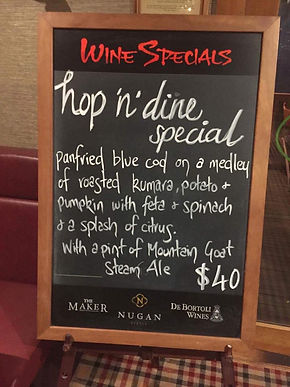 WINE SPECIALS
hop 'n' dine
special
panfried blue cod on a medley
of roasted kumara, potato &
pumpkin with feta & spinach
& a splash of citrus.
With a pint of Mountain Goat
Steam Ale $40
THE
MAKER
N
NUGAN
ESTATE
DE BORTOLI
WINES